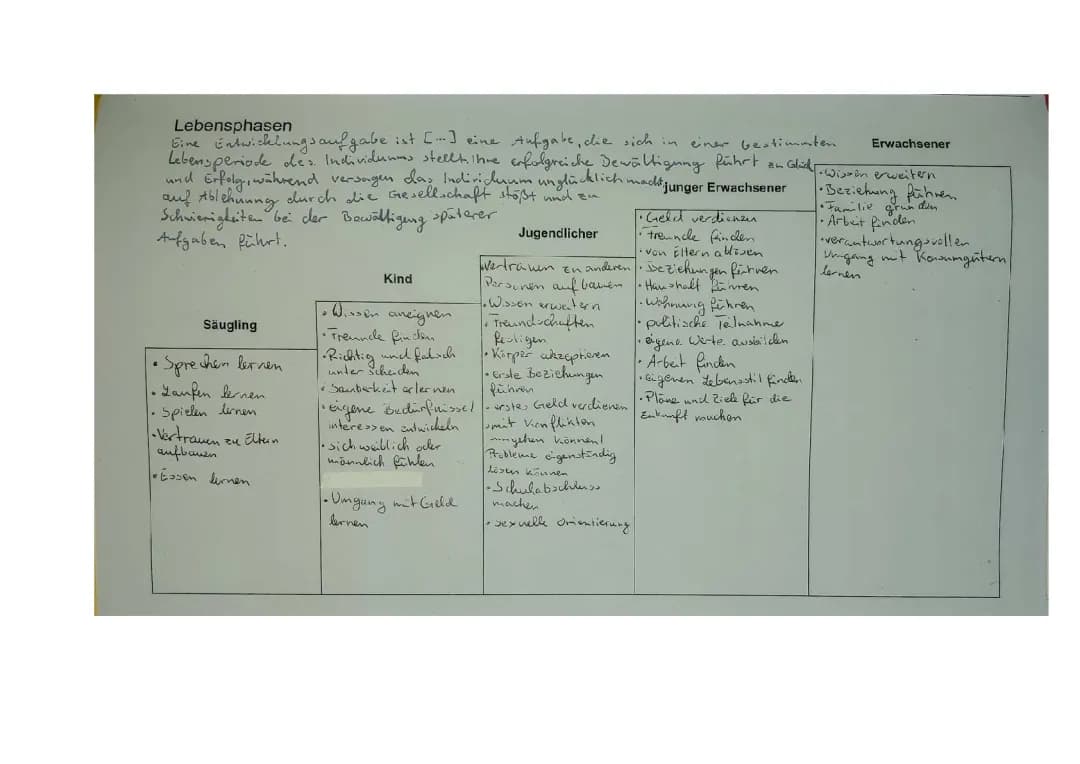 Lebensphasen
Eine Entwicklungsaufgabe ist [...] eine Aufgabe, die sich in einer bestimmten
Lebensperiode des Individuums stellt. Ihre erfolgreiche Bewältigung führt zu Glück
und Erfolg, während versagen das Individuum unglücklich macht,
auf Ablehnung durch die Gesellschaft stößt und zu
Schwierigkeiten bei der Bewältigung späterer
Aufgaben führt.
Säugling
• Sprechen lernen
• Laufen lernen
• Spielen lernen
• Vertrauen zu Eltern
aufbauen
• Essen lernen
Kind
• Wissen aneignen
• Freunde finden
• Richtig und falsch
unterscheiden
• Sauberkeit erlernen
• eigene Bedürfnisse/
interessen entwickeln
• sich weiblich oder
männlich fühlen
• Umgang mit Geld
lernen
Jugendlicher
Vertrauen zu anderen
Personen aufbauen
• Wissen erweitern
• Freundschaften
festigen
• Körper akzeptieren
• erste Beziehungen
führen
• erstes Geld verdienen
• mit Konflikten
umgehen können/
Probleme eigenständig
lösen können
• Schulabschluss
machen
• sexuelle Orientierung
junger Erwachsener
• Geld verdienen
• Freunde finden
• von Eltern ablösen
• Beziehungen führen
• Haushalt führen
• Wohnung führen
• politische Teilnahme
• eigene Werte ausbilden
• Arbeit finden
• eigenen Lebensstil finden
• Pläne und Ziele für die
Zukunft machen
Erwachsener
• Wissen erweitern
• Beziehung führen
• Familie gründen
• Arbeit finden
• verantwortungsvollen
Umgang mit Konsumgütern
lernen